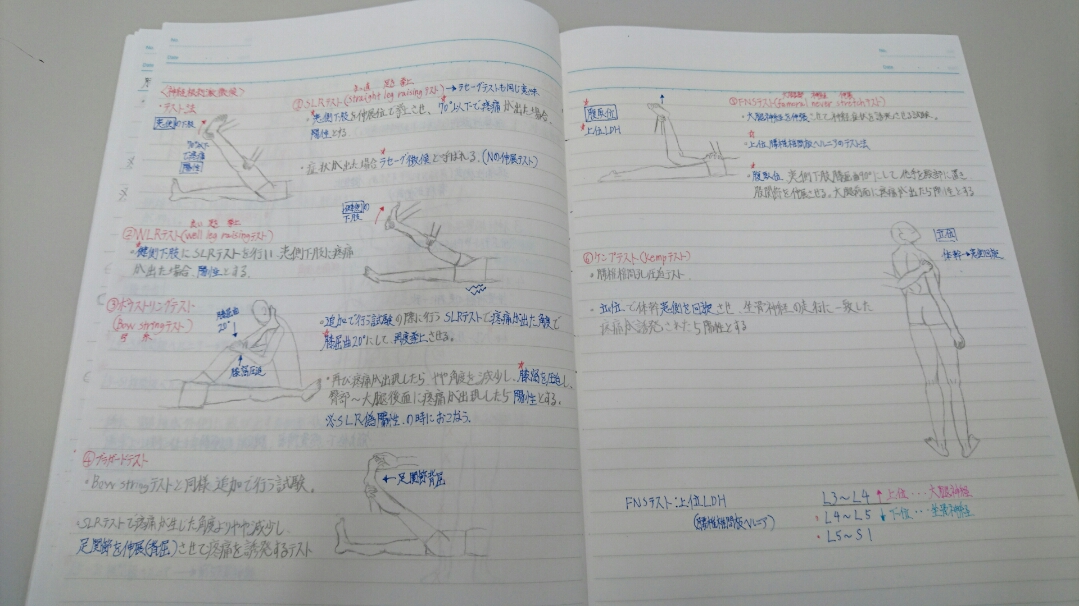 <神経根刺激徴候>
・テスト法
患側の下肢
70°以下
で疼痛
陽性
真っ直 脚 挙上
①SLRテスト(straight leg raisingテスト)→ラセーグテストも同じ意味
・患側下肢を伸展位で挙上させ、70°以下で疼痛が出た場合、
陽性とする
・症状が出た場合ラセーグ徴候と呼ばれる。(Nの伸展テスト)
良い 脚 挙上
②WLRテスト(well leg raisingテスト)
・健側下肢にSLRテストを行い、患側下肢に疼痛
が出た場合、陽性とする。
健側の
下肢
③ボウストリングテスト
(Bow stringテスト)
弓 糸
膝屈曲
20°
膝窩圧迫
・追加で行う試験の際に行う SLRテストで疼痛が出た角度で
膝屈曲20°にして、再度挙上させる。
・再び疼痛が出現したら やや角度を減少し、膝窩を圧迫し、
臀部～大腿後面に疼痛が出現したら陽性とする。
※SLR偽陽性の時におこなう。
④ブラガードテスト
・Bow stringテストと同様、追加で行う試験。
・SLRテストで疼痛が生じた角度よりやや減少し、
足関節を伸展(背屈)させて疼痛を誘発するテスト
←足関節背屈
腹臥位
上位LDH
大腿部 神経 伸張
⑤FNSテスト(femoral never stretchテスト)
・大腿神経を伸張させて神経症状を誘発させる試験。
・上位腰椎椎間板ヘルニアのテスト法
・腹臥位、患側下肢膝屈曲90°にして他手を殿部に置き
股関節を伸展させる。大腿前面に疼痛が出たら陽性とする
⑥ケンプテスト(Kempテスト)
・椎間孔圧迫テスト
・立位で体幹患側を回旋させ、坐骨神経の走行に一致した
疼痛が誘発されたら陽性とする
立位
体幹→患側回旋
FNSテスト:上位LDH
(腰椎椎間板ヘルニア)
L3～L4 ↑上位…大腿神経
・L4～L5 ↓下位…坐骨神経
・L5～S1